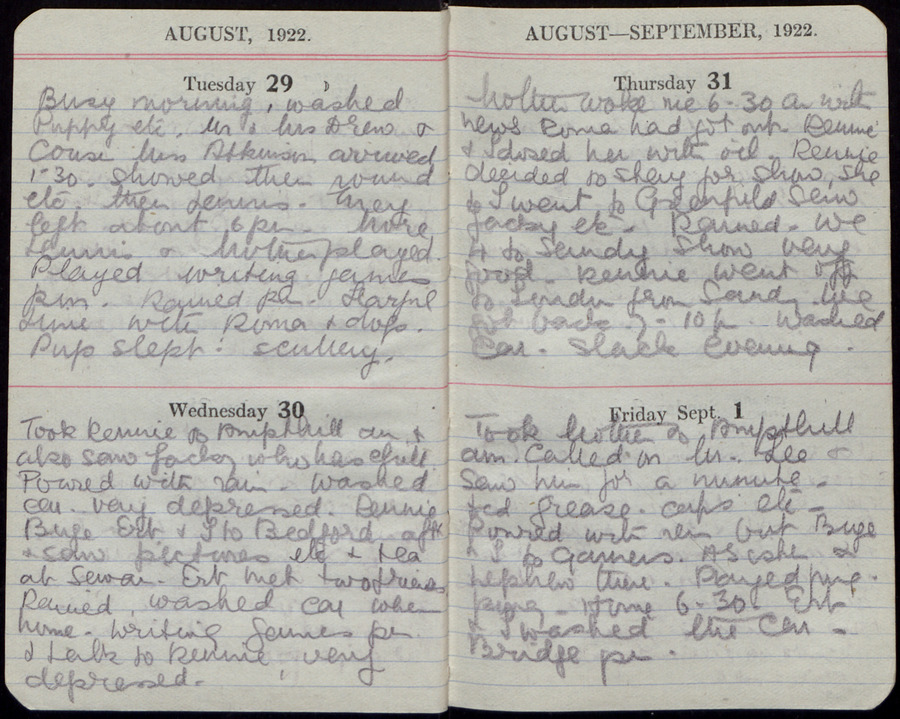 AUGUST, 1922.
Tuesday 29
Busy morning, washed
Puppy etc. Mr & Mrs Drew &
Cousi Miss Atkinson arrived
1-30. Showed them round
etc. then Tennis. They
left about 6 pm. More
Tennis & Mother played.
Played writing games
pm. Rained pm.
time with Roma & dogs.
Pup slept: scullery.
Wednesday 30
Took Rennie to Ampthill am, &
also saw Jacky who has chill.
Poured with rain. Washed
car. Very depressed. Rennie
Buge Ert & I to Bedford aft
& saw pictures etc & tea
at Ert met two
Rained, washed car when
home. Writing Games pm
& talk to Rennie, very
depressed.
AUGUST—SEPTEMBER, 1922.
Thursday 31
Mother woke me 6-30 am with
news Roma had got out Rennie
& I dosed her with oil. Rennie
decided to stay for Show, she
& I went to Greenfield Saw
Jacky etc. Rained. We
4 to Sandy Show very
good. Rennie went off
to London from Sandy. We
got back 7-10 p. Washed
Car. Slack Evening.
Friday Sept. 1
Took Mother to Ampthill
am. Called on Mr. Lee &
Saw him for a minute.
grease caps etc
Poured with rain but Buge
& I to Gamers. &
nephew there. Played ping
pong. Home 6-30. Ert
& I washed the Car.
Bridge pm.